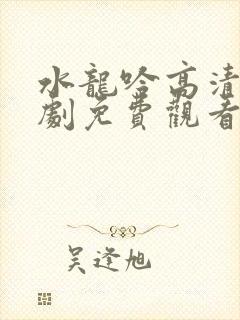 水龍吟高清
劇免費觀看
吳逢旭